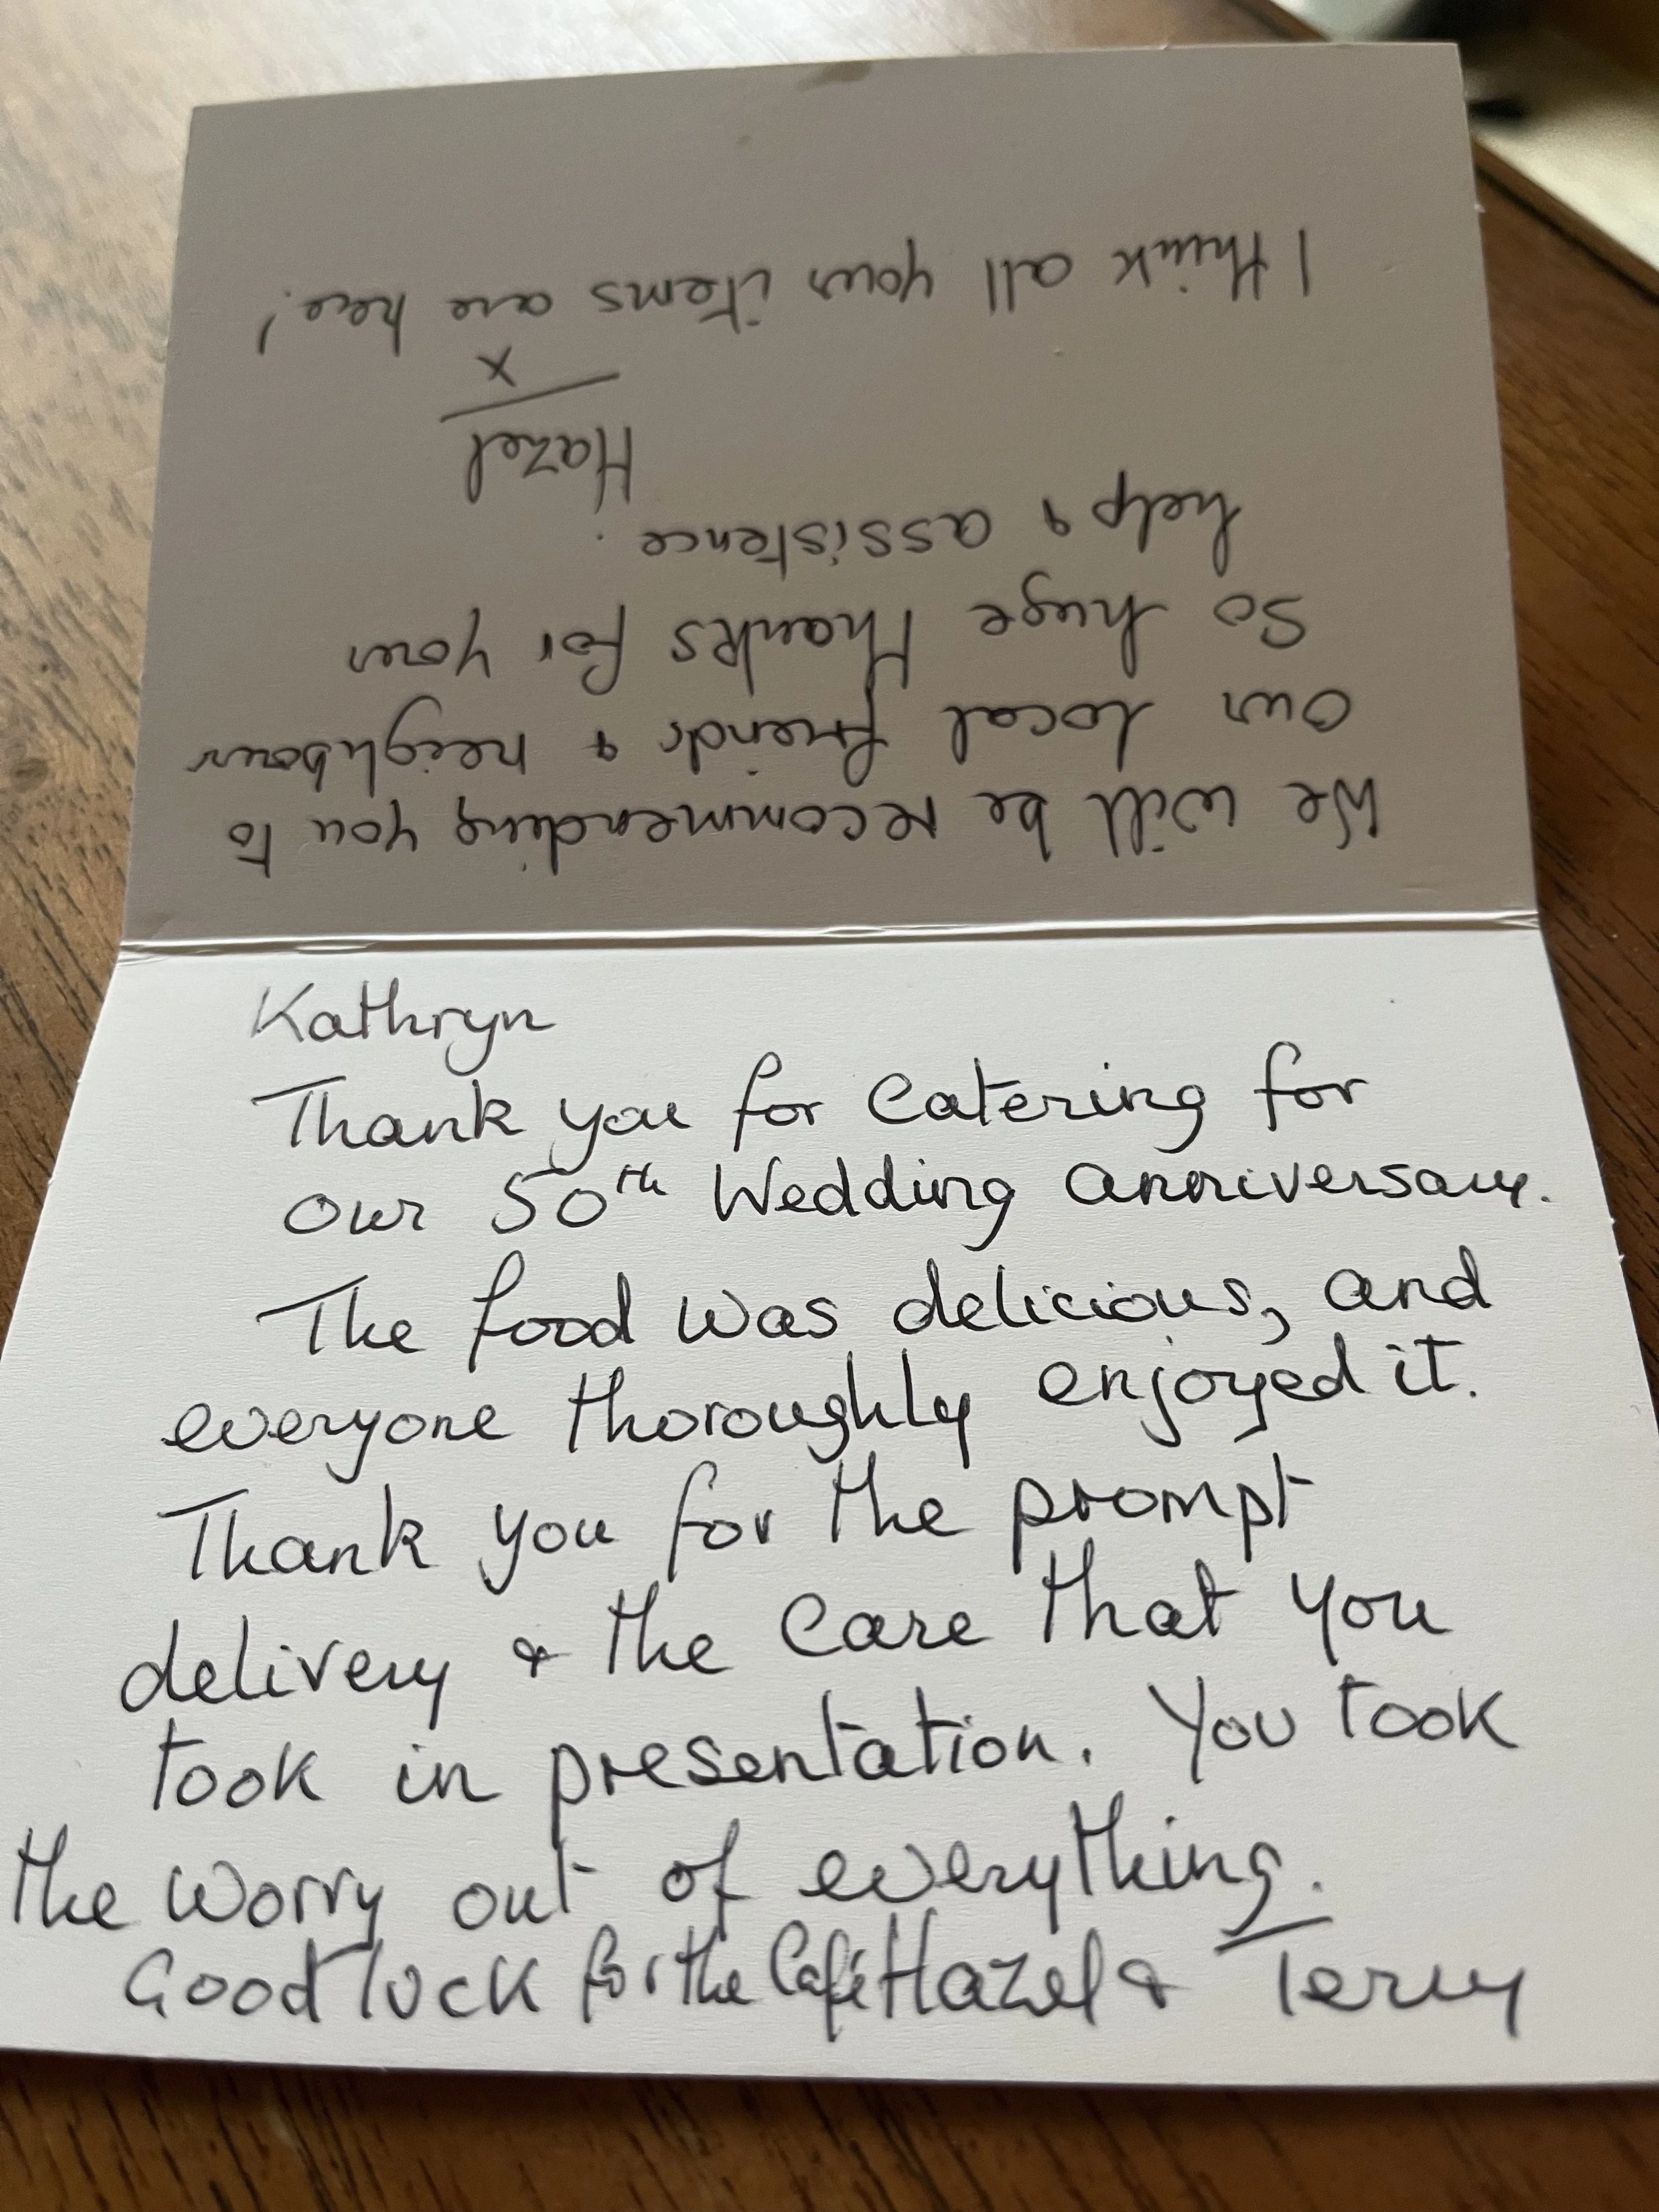 Kathryn
Thank you for Catering for
our 50th Wedding anniversary.
The food was delicious, and
everyone thoroughly enjoyed it.
Thank you for the prompt
delivery & the Care that you
took in presentation. You took
the worry out of everything.
Good luck for the Café Hazel & Terry
We will be recommending you to
our local friends & neighbours
So huge thanks for your
help & assistence.
Hazel
x
I think all your items are here!